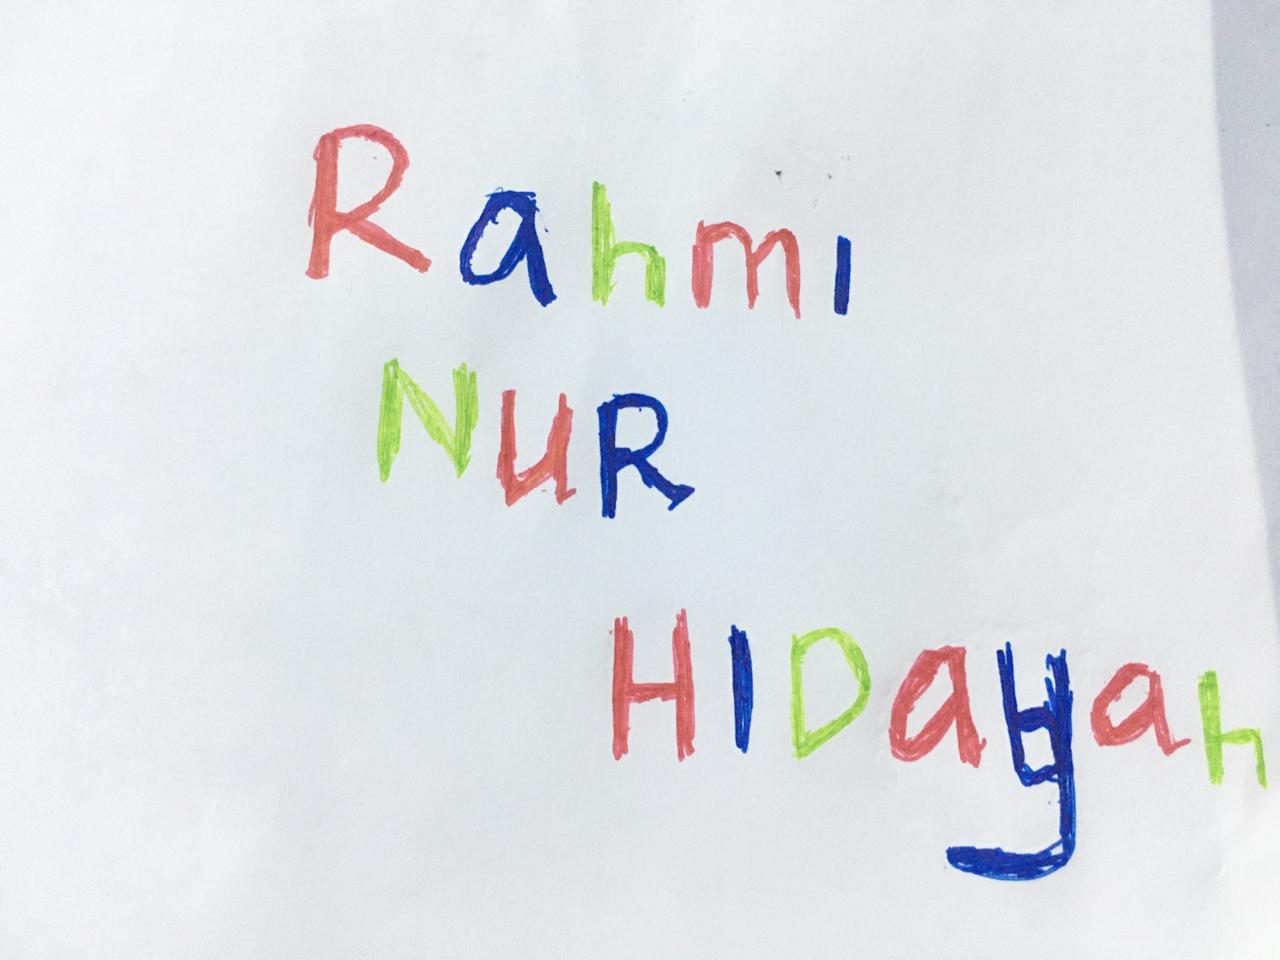 Rahmi
NUR
HIDayah